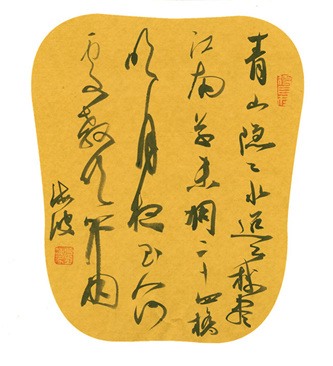 青山隐々水迢々秋尽
江南草未凋二十四橋
明月夜玉人何
處教吹箫
海波